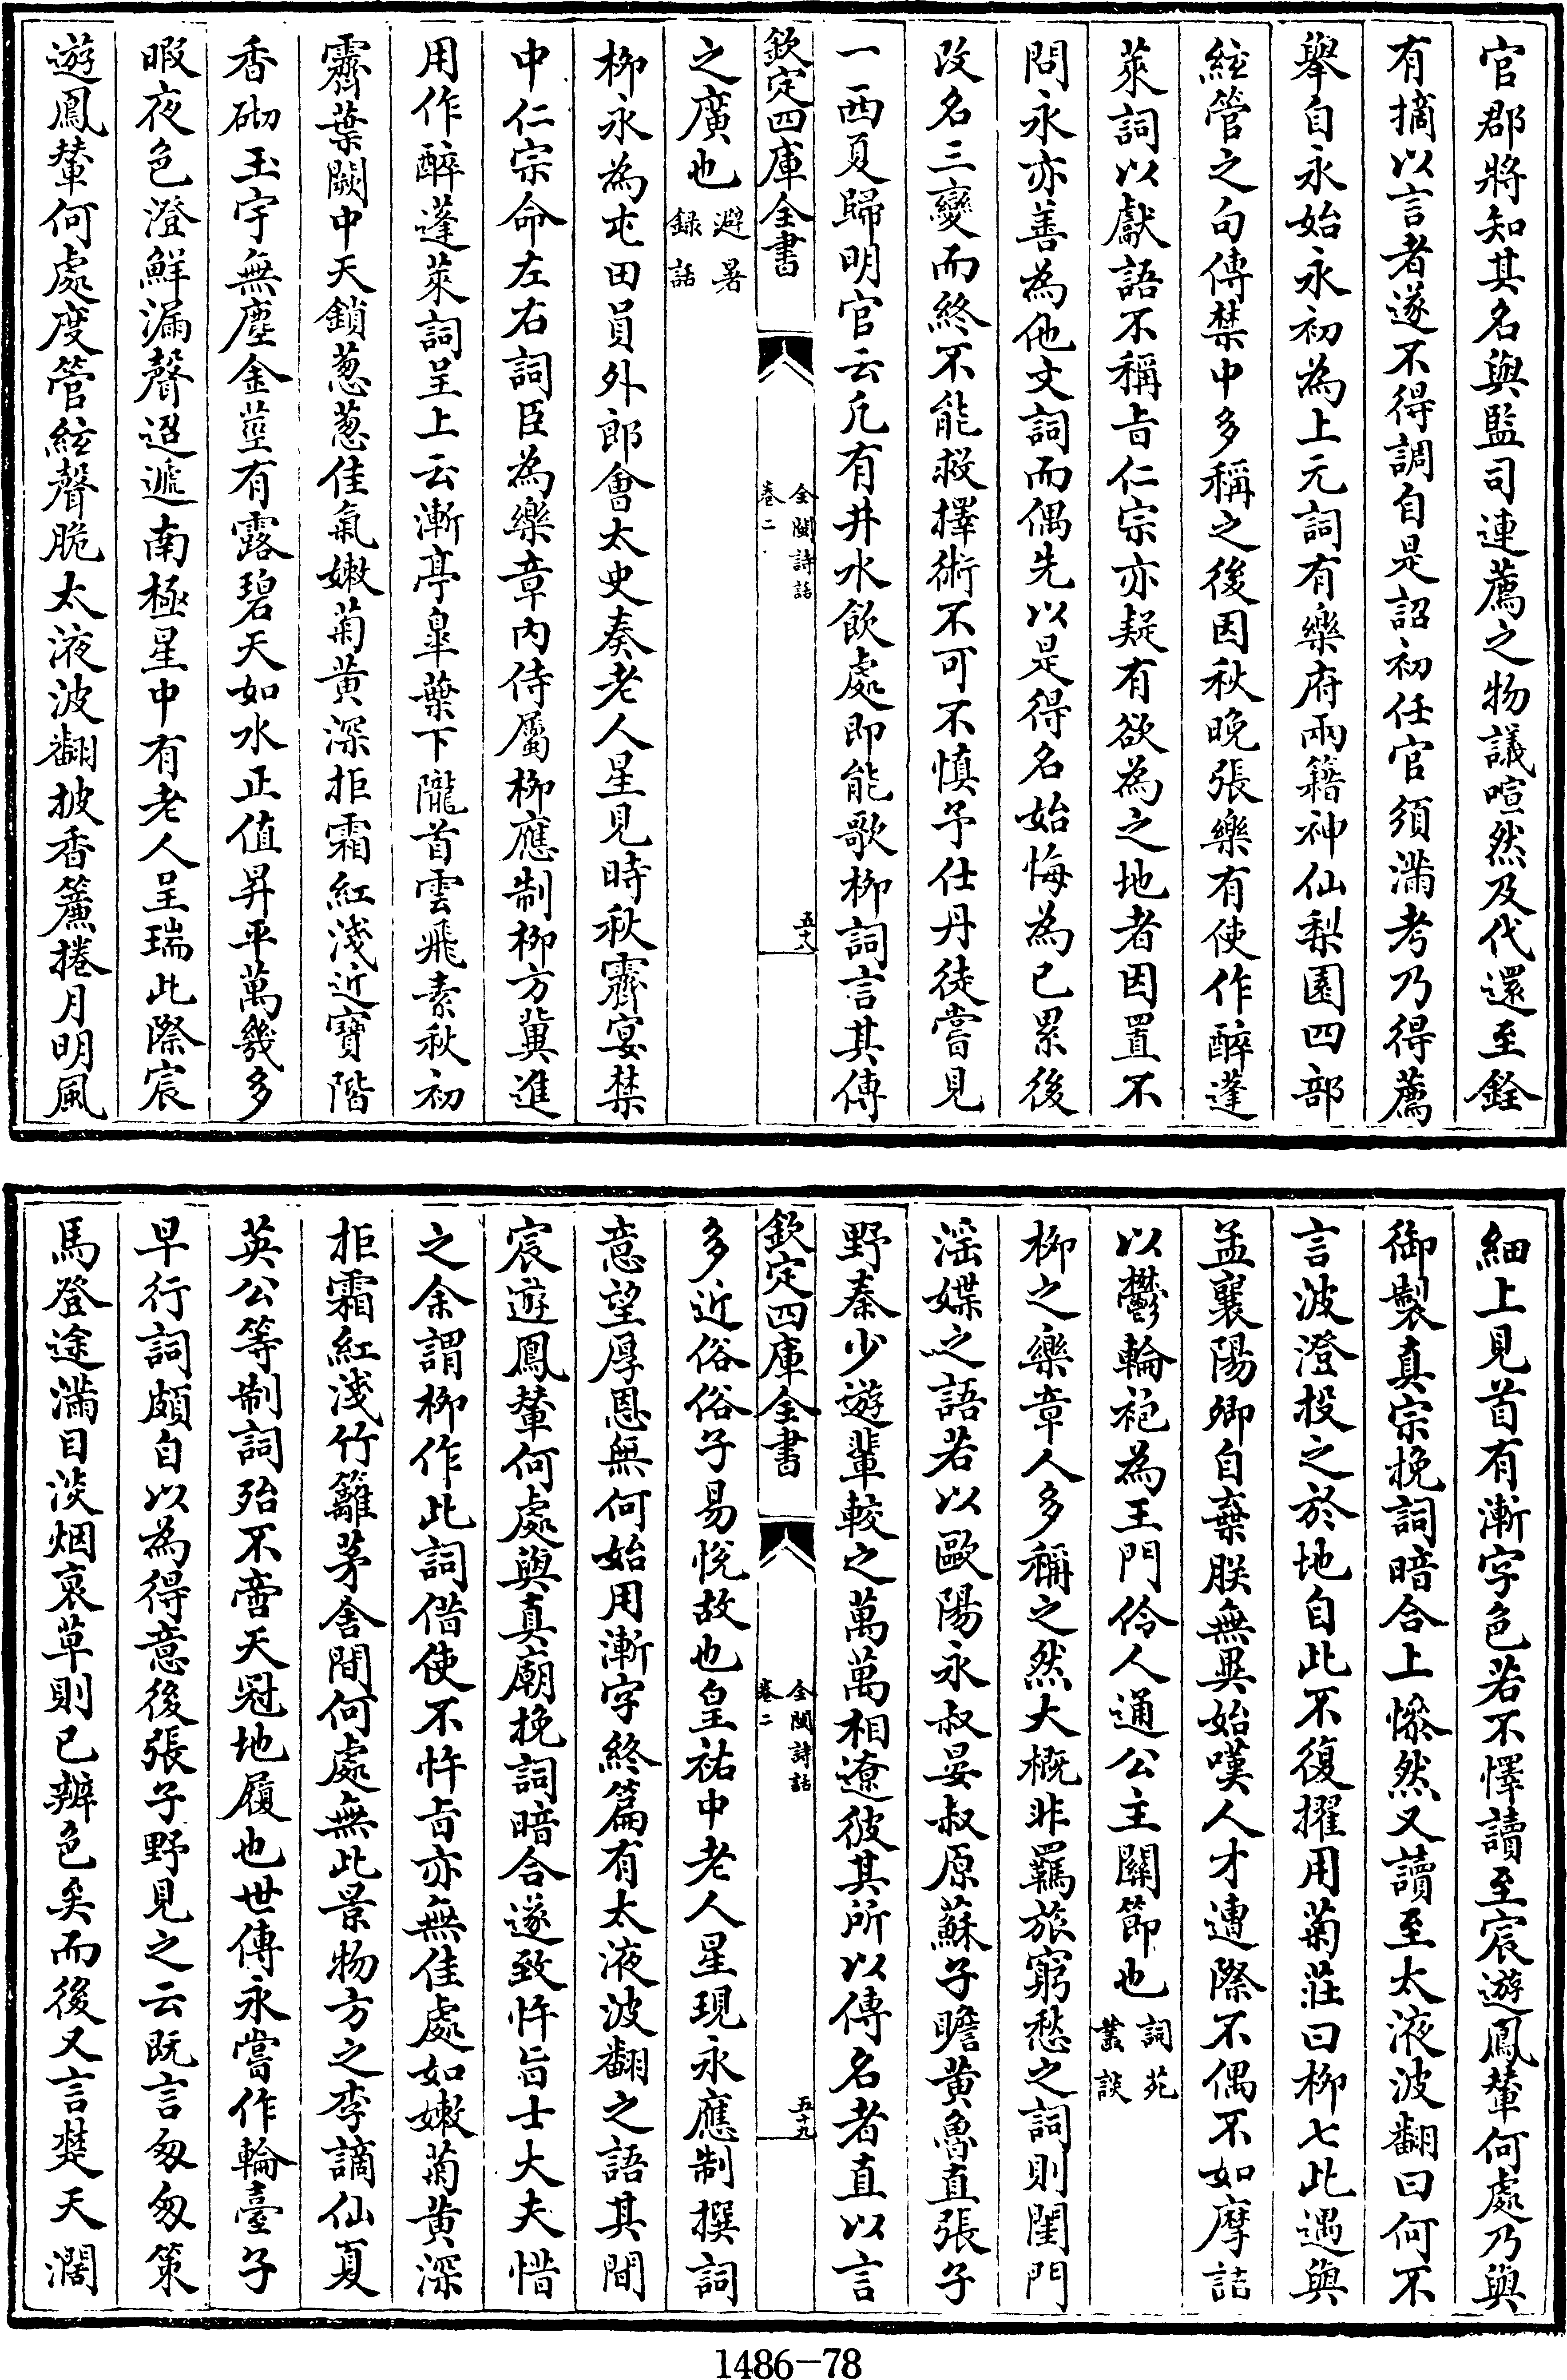 官郡將知其名與監司連薦之物議喧然及代還至銓
有摘以言者遂不得調自是詔初任官須滿考乃得薦
舉自永始永初為上元詞有樂府兩籍神仙梨園四部
絃管之句傳禁中多稱之後因秋晚張樂有使作醉蓬
萊詞以獻語不稱㫖仁宗亦疑有欲為之地者因置不
問永亦善為他文詞而偶先以是得名始悔為已累後
改名三變而終不能救擇術不可不慎予仕丹徒嘗見
一西夏歸明官云凡有井水飲處即能歌柳詞言其傳
欽定四庫全書
全閩詩話
卷二
五十八
之廣也
避暑
録話
柳永為屯田員外郎會太史奏老人星見時秋霽宴禁
中仁宗命左右詞臣為樂章内侍屬柳應制柳方冀進
用作醉蓬萊詞呈上云漸亭臯葉下隴首雲飛素秋初
霽華闕中天鎖葱葱佳氣嫩菊黄深拒霜紅淺近寶階
香砌玉宇無塵金莖有露碧天如水正值昇平萬幾多
暇夜色澄鮮漏聲迢遞南極星中有老人呈瑞此際宸
遊鳳輦何處度管絃聲脆太液波翻披香簾捲月明風
細上見首有漸字色若不懌讀至宸遊鳳輦何處乃與
御製真宗挽詞暗合上慘然又讀至太液波翻曰何不
言波澄投之於地自此不復擢用菊莊曰柳七此遇與
孟襄陽卿自棄朕無異始嘆人才遭際不偶不如摩詰
以鬱輪袍為王門伶人通公主關節也
詞苑
叢談
柳之樂章人多稱之然大概非羈旅窮愁之詞則閨門
淫媟之語若以歐陽永叔晏叔原蘇子瞻黄魯直張子
野秦少遊輩較之萬萬相遼彼其所以傳名者直以言
欽定四庫全書
全閩詩話
卷二
五十九
多近俗俗子易悅故也皇祐中老人星現永應制撰詞
意望厚恩無何始用漸字終篇有太液波翻之語其間
宸遊鳳輦何處與真廟挽詞暗合遂致忤㫖士大夫惜
之余謂柳作此詞借使不忤㫖亦無佳處如嫩菊黄深
拒霜紅淺竹籬茅舍間何處無此景物方之李謫仙夏
英公等制詞殆不啻天冠地履也世傳永嘗作輪臺子
早行詞頗自以為得意後張子野見之云既言匆匆策
馬登途滿目淡烟衰草則已辨色矣而後又言楚天濶
1486-78